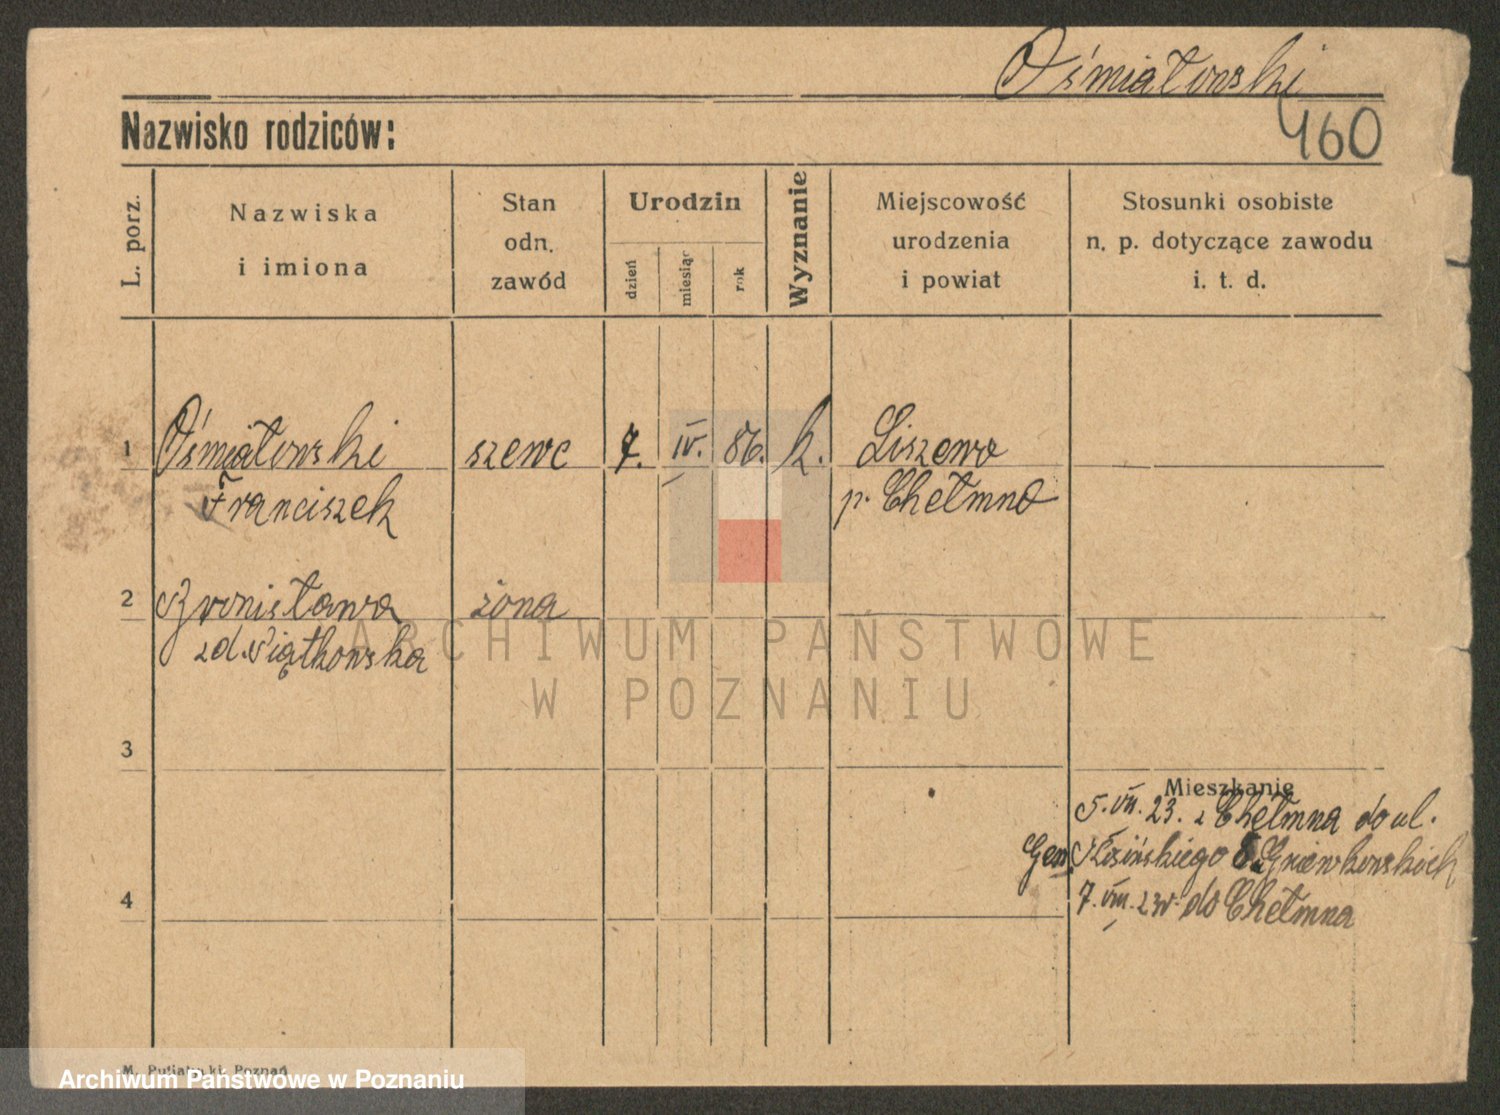 Ośmiałowski
460
Nazwisko rodziców:
L. porz.
Nazwiska
i imiona
Stan
odn.
zawód
Urodzin
dzień
miesiąc
rok
Wyznanie
Miejscowość
urodzenia
i powiat
Stosunki osobiste
n. p. dotyczące zawodu
i. t. d.
1 Ośmiałowski szewc 7. IV. 86. k. Liszewo
Franciszek p. Chełmno
2 Bronisława żona
zd. Piątkowska
ARCHIWUM PAŃSTWOWE
W POZNANIU
3
Mieszkanie
5. VII. 23. z Chełmna do ul.
Gen. 8. Gniewkowskich
4
7. VIII. 23 do Chełmna
M. Putiatycki, Poznań
Archiwum Państwowe w Poznaniu